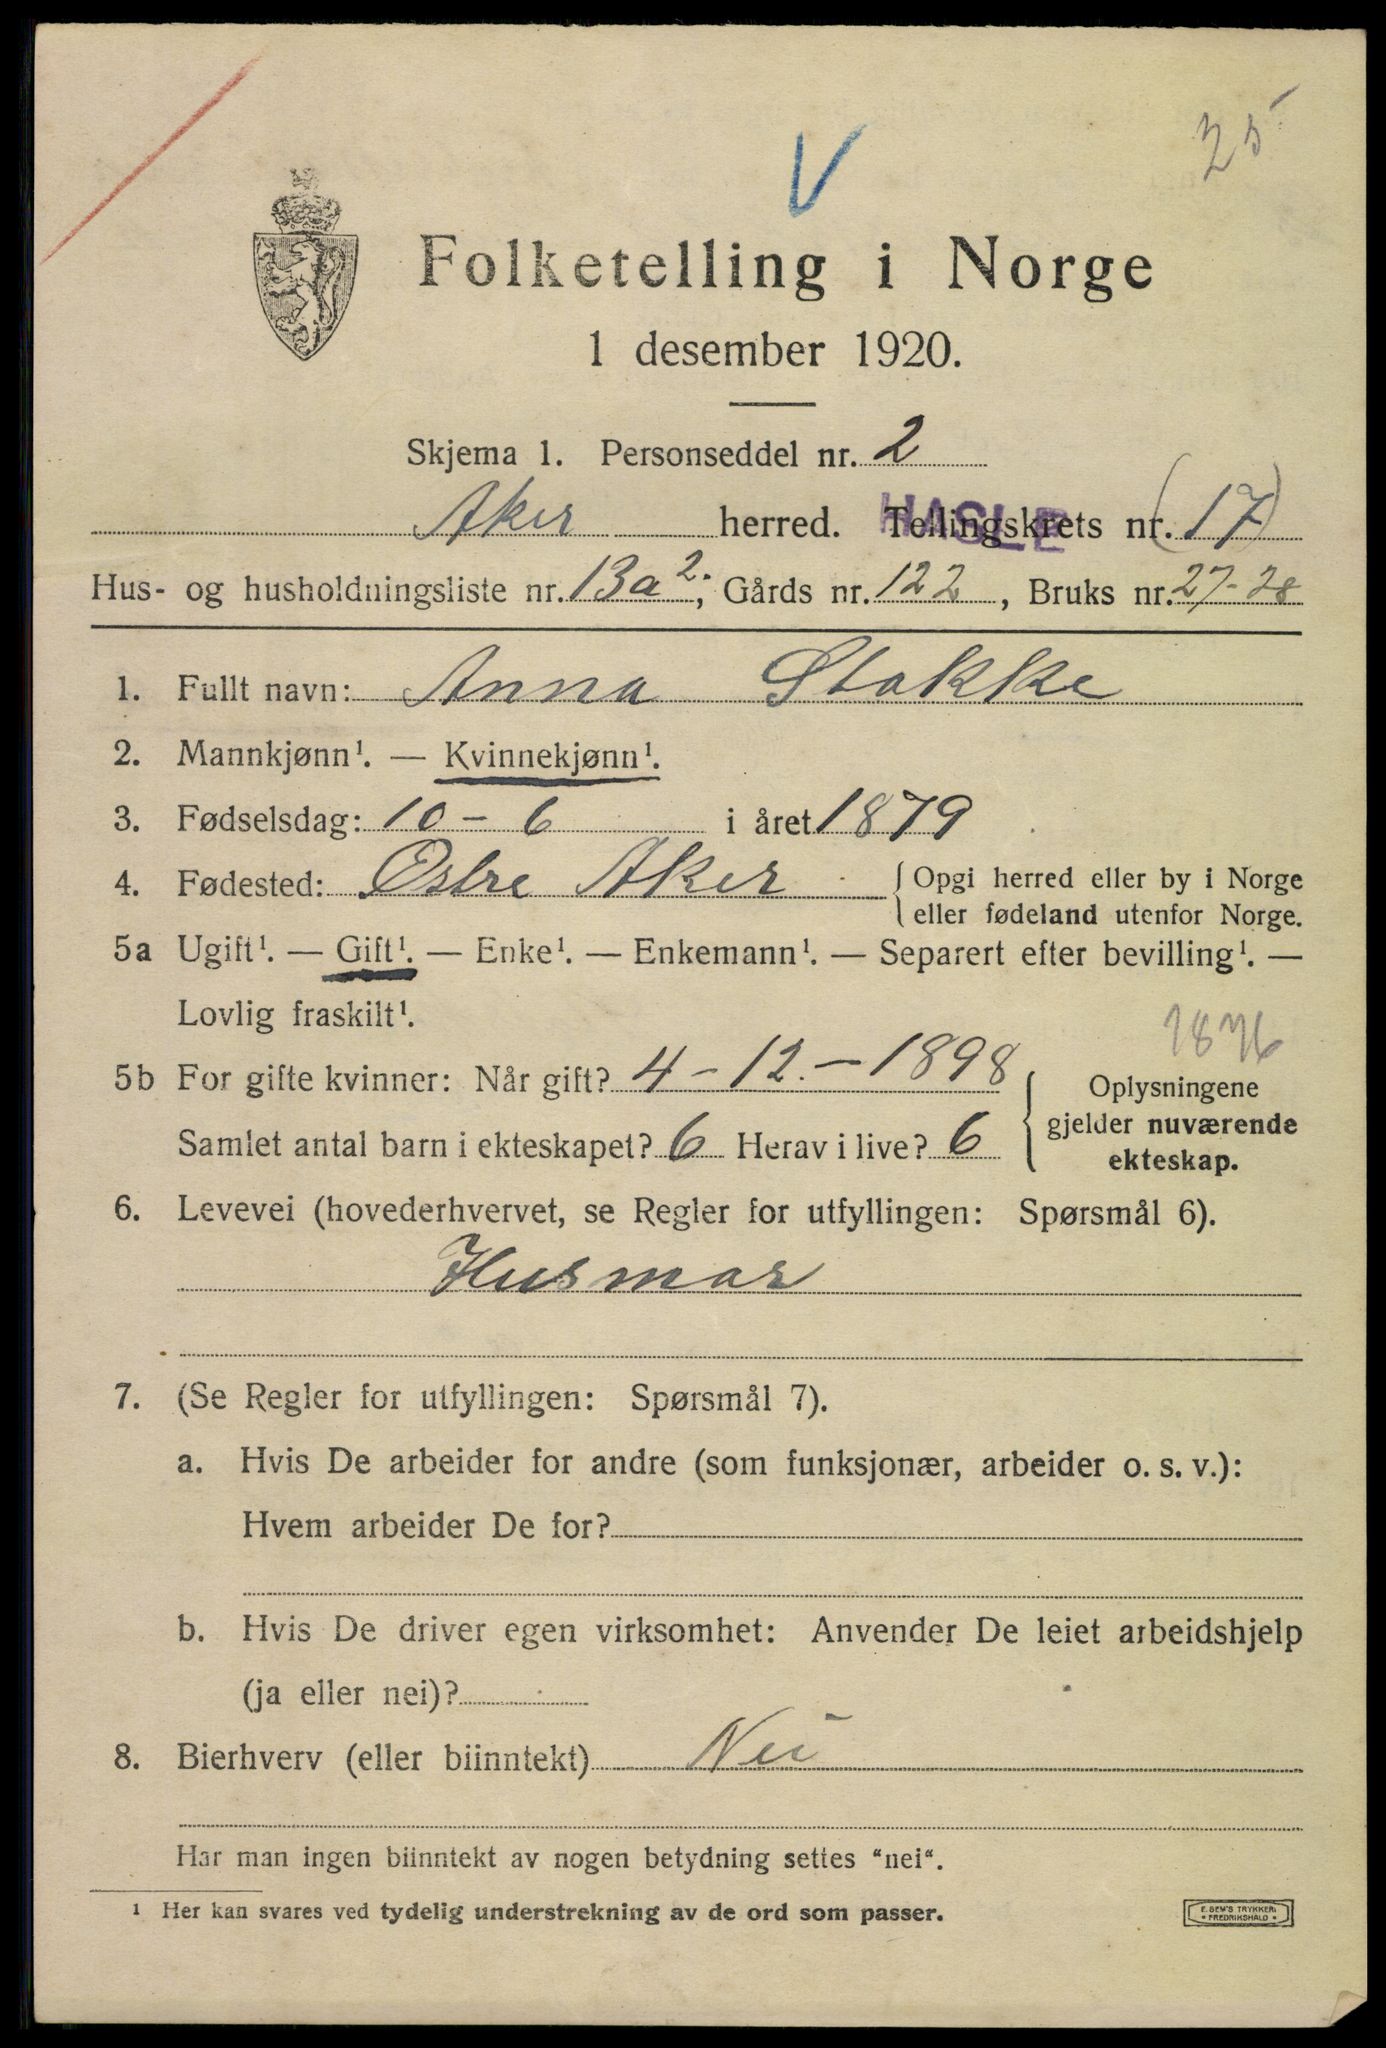 25
V
Folketelling i Norge
1 desember 1920.
Skjema 1. Personseddel nr. 2
Aker herred. HASLE Tellingskrets nr. (17)
Hus- og husholdningsliste nr. 13a²; Gårds nr. 122, Bruks nr. 27-28
1. Fullt navn: Anna Stokke
2. Mannkjønn¹. — Kvinnekjønn¹.
3. Fødselsdag: 10 - 6 i året 1879
4. Fødested: Østre Aker { Opgi herred eller by i Norge
eller fødeland utenfor Norge.
5a Ugift¹. — Gift¹. — Enke¹. — Enkemann¹. — Separert efter bevilling¹. —
Lovlig fraskilt¹.
1876
5b For gifte kvinner: Når gift? 4 - 12. - 1898 { Oplysningene
gjelder nuværende
ekteskap.
Samlet antal barn i ekteskapet? 6 Herav i live? 6
6. Levevei (hovederhvervet, se Regler for utfyllingen: Spørsmål 6).
Husmor
7. (Se Regler for utfyllingen: Spørsmål 7).
a. Hvis De arbeider for andre (som funksjonær, arbeider o. s. v.):
Hvem arbeider De for?
b. Hvis De driver egen virksomhet: Anvender De leiet arbeidshjelp
(ja eller nei)?
8. Bierhverv (eller biinntekt) Nei
Har man ingen biinntekt av nogen betydning settes “nei“.
¹ Her kan svares ved tydelig understrekning av de ord som passer.
E. SEM'S TRYKKERI
• FREDRIKSHALD •